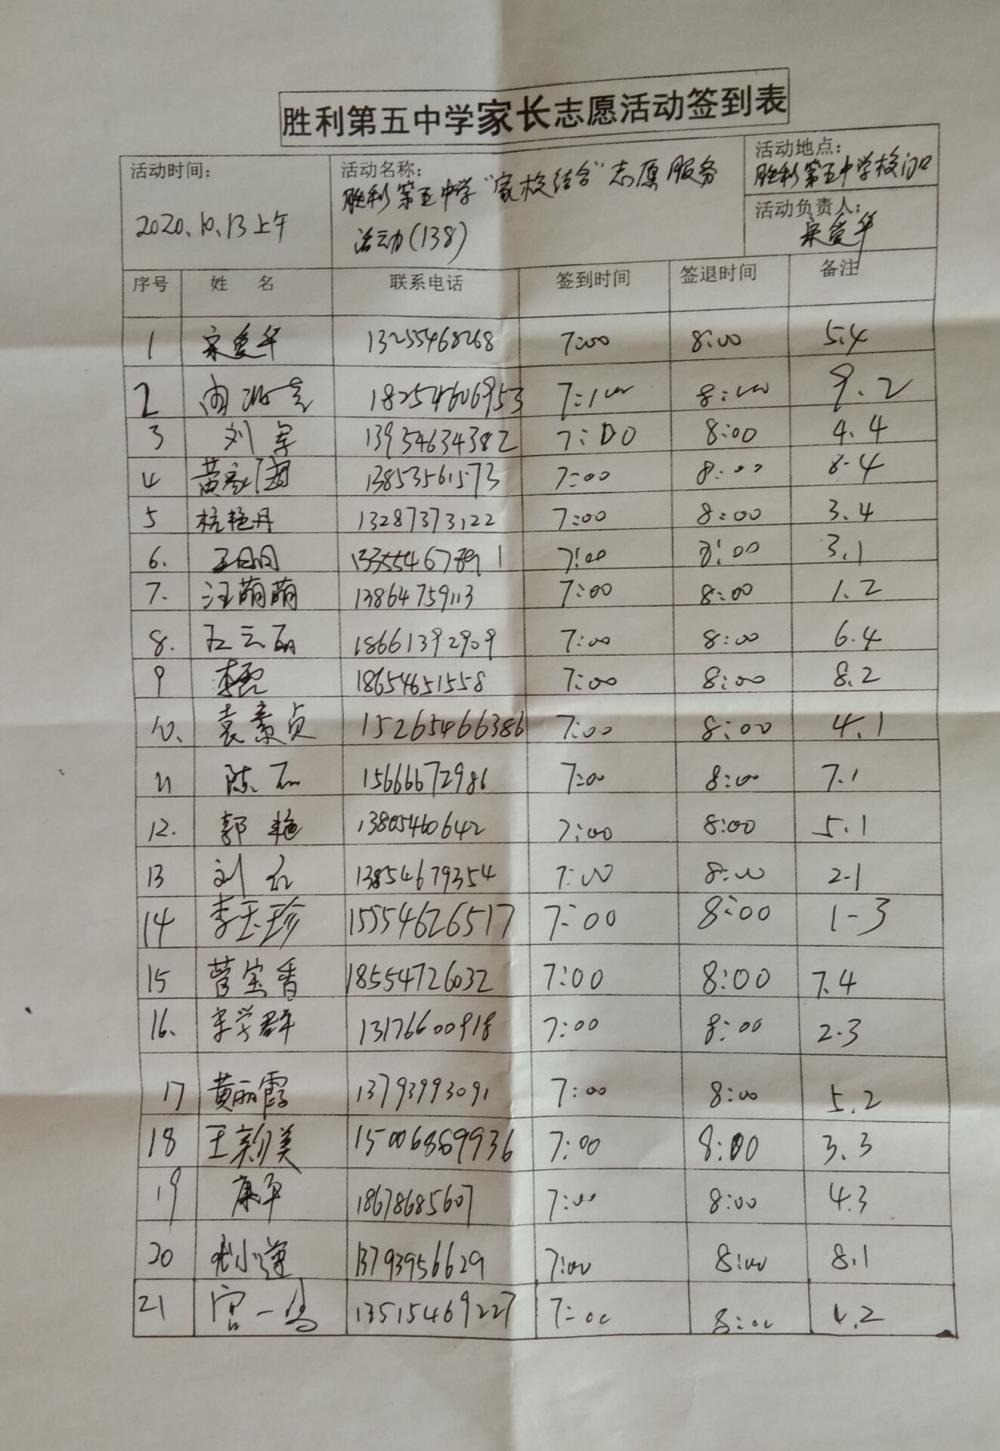 胜利第五中学家长志愿活动签到表
活动时间: 2020.10.13上午
活动名称: 胜利第五中学“家校结合”志愿服务
活动(138)
活动地点: 胜利第五中学校门口
活动负责人: 宋爱华
序号 姓名 联系电话 签到时间 签退时间 备注
1 宋爱华 13255468268 7:00 8:00 5.4
2 18254606953 7:00 8:00 9.2
3 刘军 13954634382 7:00 8:00 4.4
4 13853561573 7:00 8:00 8.4
5 杭艳丹 13287373122 7:00 8:00 3.4
6. 7:00 8:00 3.1
7. 汪萌萌 13864759113 7:00 8:00 1.2
8. 18661392909 7:00 8:00 6.4
9 18654651558 7:00 8:00 8.2
10. 袁素贞 15265466386 7:00 8:00 4.1
11 15666672986 7:00 8:00 7.1
12. 郭艳 13805460642 7:00 8:00 5.1
13 刘 13854679354 7:00 8:00 2.1
14 李玉珍 15554626517 7:00 8:00 1-3
15 菅宝香 18554726032 7:00 8:00 7.4
16. 李学群 13176600918 7:00 8:00 2.3
17 黄丽霞 13793993091 7:00 8:00 5.2
18 王新美 15006889936 7:00 8:00 3.3
19 康军 18678685607 7:00 8:00 4.3
20 尤小莲 13793956629 7:00 8:00 8.1
21 宫一鸟 13515469227 7:00 8:00 4.2